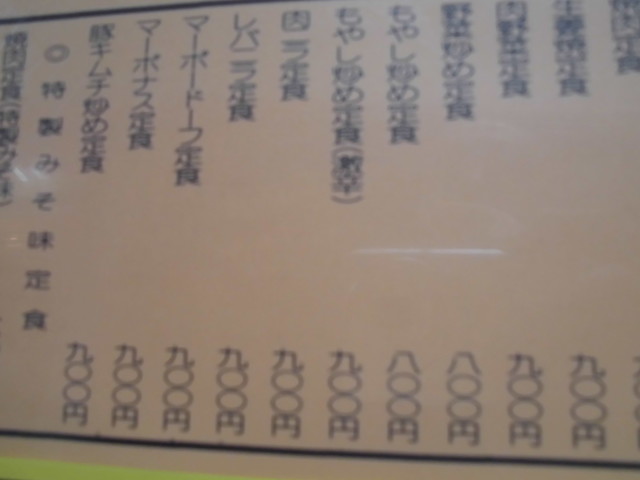 焼肉定食
生姜焼定食 九〇〇円
肉野菜定食 九〇〇円
野菜炒め定食 八〇〇円
もやし炒め定食 八〇〇円
もやし炒め定食(激辛) 九〇〇円
肉ニラ定食 九〇〇円
レバニラ定食 九〇〇円
マーボードーフ定食 九〇〇円
マーボナス定食 九〇〇円
豚キムチ炒め定食 九〇〇円
◎特製みそ味定食
焼肉定食(特製みそ味)